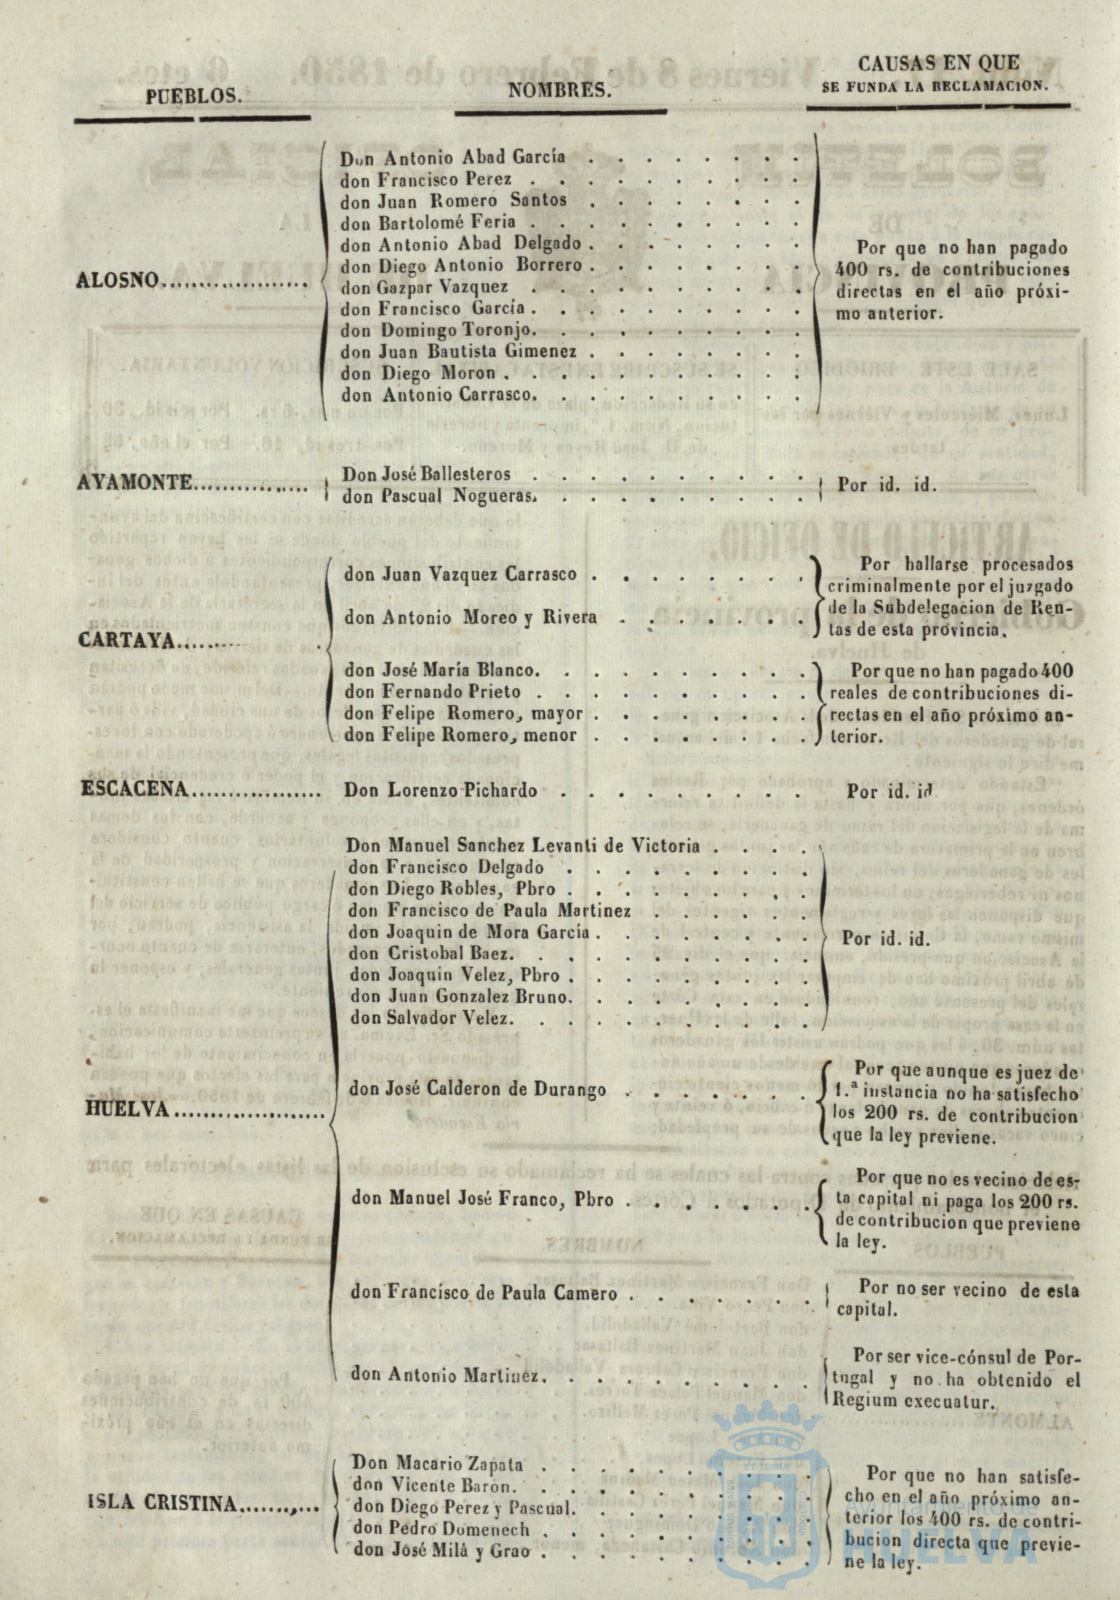 PUEBLOS.
NOMBRES.
CAUSAS EN QUE
SE FUNDA LA RECLAMACION.
ALOSNO....................
Don Antonio Abad García . . . . . . . . .
don Francisco Perez . . . . . . . . . .
don Juan Romero Santos . . . . . . . . .
don Bartolomé Feria . . . . . . . . . .
don Antonio Abad Delgado . . . . . . . .
don Diego Antonio Borrero . . . . . . . .
don Gazpar Vazquez . . . . . . . . . .
don Francisco García . . . . . . . . . .
don Domingo Toronjo. . . . . . . . . .
don Juan Bautista Gimenez . . . . . . . .
don Diego Moron . . . . . . . . . . .
don Antonio Carrasco. . . . . . . . . .
Por que no han pagado
400 rs. de contribuciones
directas en el año próxi-
mo anterior.
AYAMONTE...............
Don José Ballesteros . . . . . . . . . .
don Pascual Nogueras. . . . . . . . . .
Por id. id.
CARTAYA............
don Juan Vazquez Carrasco . . . . . . . .
don Antonio Moreo y Rivera . . . . . . .
Por hallarse procesados
criminalmente por el juzgado
de la Subdelegacion de Ren-
tas de esta provincia.
don José María Blanco. . . . . . . . . .
don Fernando Prieto . . . . . . . . . .
don Felipe Romero, mayor . . . . . . . .
don Felipe Romero, menor . . . . . . . .
Por que no han pagado 400
reales de contribuciones di-
rectas en el año próximo an-
terior.
ESCACENA.................
Don Lorenzo Pichardo . . . . . . . . .
Por id. id
HUELVA....................
Don Manuel Sanchez Levanti de Victoria . . . .
don Francisco Delgado . . . . . . . . .
don Diego Robles, Pbro . . . . . . . . .
don Francisco de Paula Martinez . . . . . .
don Joaquin de Mora García . . . . . . . .
don Cristobal Baez. . . . . . . . . . .
don Joaquin Velez, Pbro . . . . . . . . .
don Juan Gonzalez Bruno. . . . . . . . .
don Salvador Velez. . . . . . . . . . .
Por id. id.
don José Calderon de Durango . . . . . . .
Por que aunque es juez de
1.ª instancia no ha satisfecho
los 200 rs. de contribucion
que la ley previene.
don Manuel José Franco, Pbro . . . . . . .
Por que no es vecino de es-
ta capital ni paga los 200 rs.
de contribucion que previene
la ley.
don Francisco de Paula Camero . . . . . . .
Por no ser vecino de esta
capital.
don Antonio Martinez. . . . . . . . . .
Por ser vice-cónsul de Por-
tugal y no ha obtenido el
Regium execuatur.
ISLA CRISTINA..........
Don Macario Zapata . . . . . . . . . .
don Vicente Baron. . . . . . . . . . .
don Diego Perez y Pascual. . . . . . . . .
don Pedro Domenech . . . . . . . . . .
don José Milá y Grao . . . . . . . . . .
Por que no han satisfe-
cho en el año próximo an-
terior los 400 rs. de contri-
bucion directa que previe-
ne la ley.
HUELVA